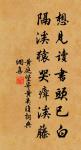 想見讀書頭已白
隔溪猿哭瘴溪藤
黃庭堅寄黃幾復詞典
網寫